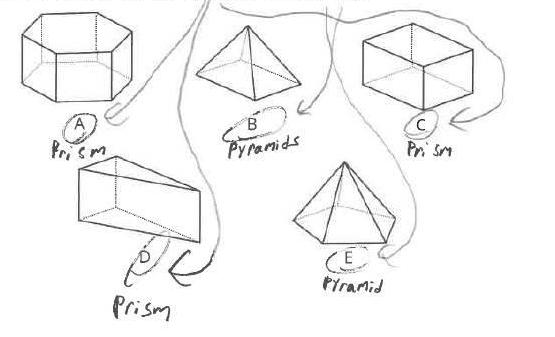 A B C
Prism Pyramids Prism
D E
Prism Pyramid